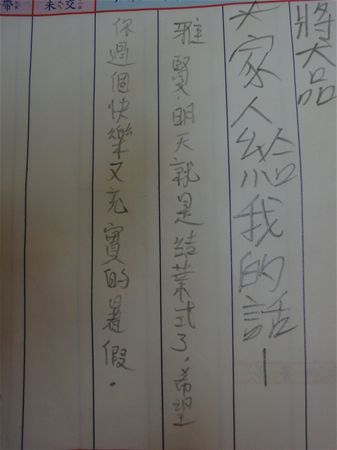 帶 未交
獎品
家人給我的話—
雅賢,明天就是結業式了。希望
你過個快樂又充實的暑假。